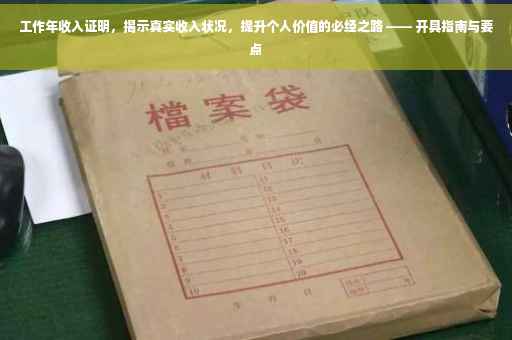 工作年收入证明，揭示真实收入状况，提升个人价值的必经之路 —— 开具指南与要
点
檔案袋
材料目次
1
2
3
4
5
6
7
8
9
10
11
12
13
14
15
16
17
18
19
20
年 月 日